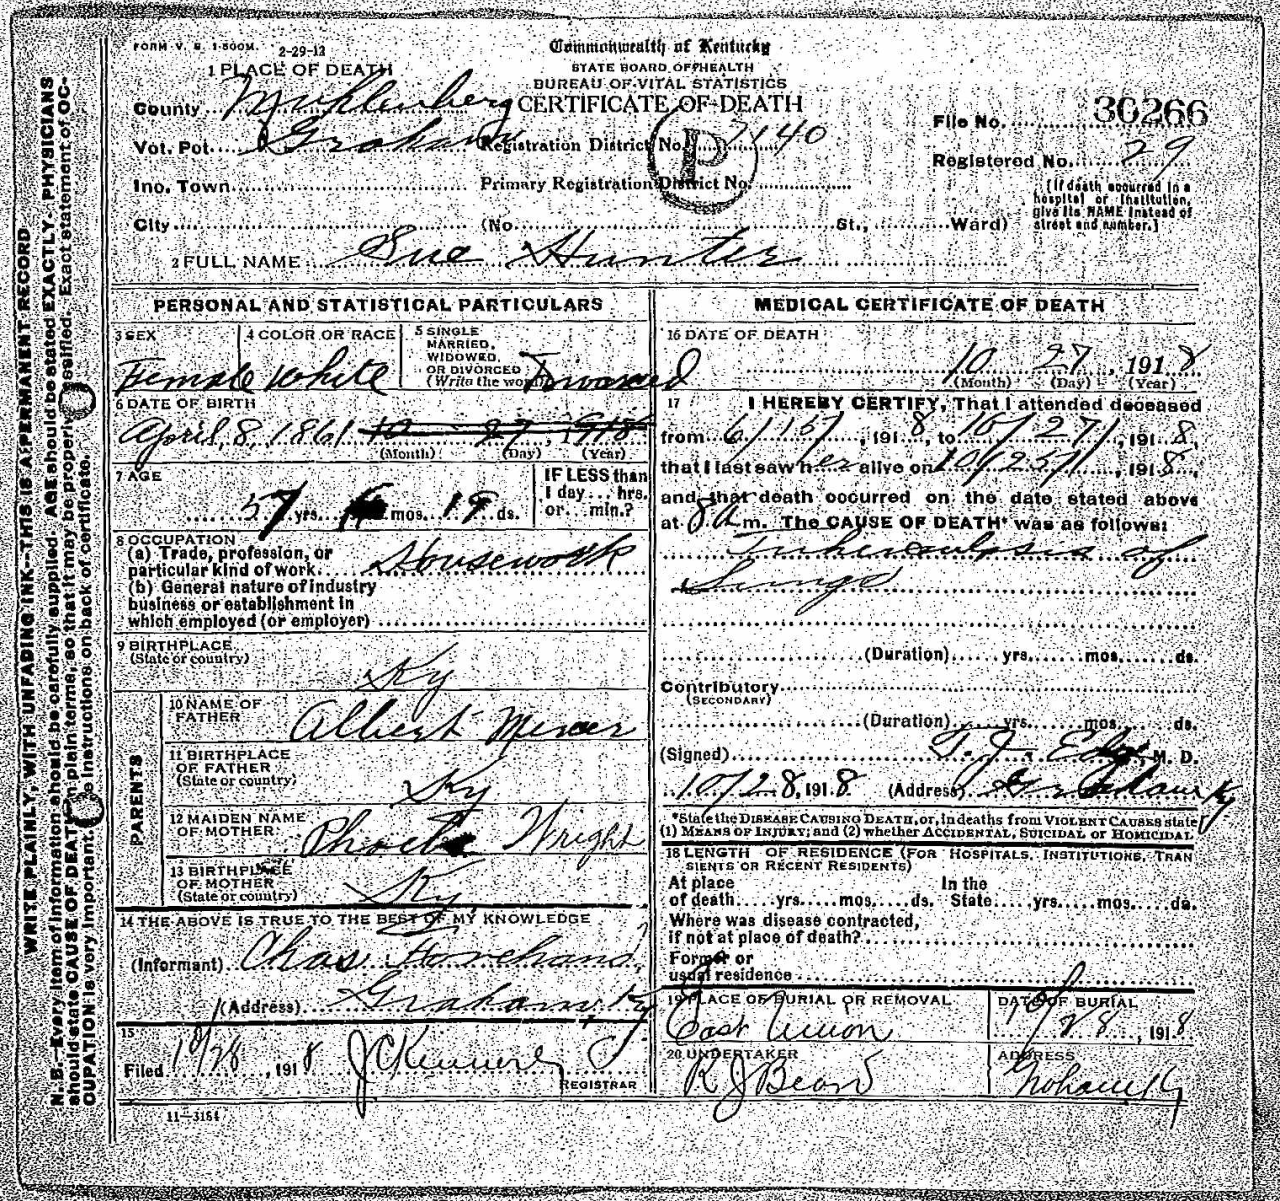 FORM V. S. 1-500M. 2-29-12
Commonwealth of Kentucky
STATE BOARD OF HEALTH
BUREAU OF VITAL STATISTICS
CERTIFICATE OF DEATH
1 PLACE OF DEATH
County Muhlenberg
Vot. Pct. Graham
Registration District No. 7140
File No. 30266
Registered No. 29
Inc. Town
Primary Registration District No.
P
City (No. St., Ward)
(If death occurred in a
hospital or institution,
give its NAME instead of
street and number.)
2 FULL NAME Sue Hunter
PERSONAL AND STATISTICAL PARTICULARS
3 SEX
Female
4 COLOR OR RACE
White
5 SINGLE
MARRIED,
WIDOWED,
OR DIVORCED
(Write the word)
6 DATE OF BIRTH
April, 8, 1861 10 27, 1918
(Month) (Day) (Year)
7 AGE
57 yrs. 6 mos. 19 ds.
IF LESS than
1 day... hrs.
or... min.?
8 OCCUPATION
(a) Trade, profession, or
particular kind of work Housework
(b) General nature of industry
business or establishment in
which employed (or employer)
9 BIRTHPLACE
(State or country)
Ky
PARENTS
10 NAME OF
FATHER
Albert Mercer
11 BIRTHPLACE
OF FATHER
(State or country)
Ky
12 MAIDEN NAME
OF MOTHER
Phoebe Wright
13 BIRTHPLACE
OF MOTHER
(State or country)
Ky
14 THE ABOVE IS TRUE TO THE BEST OF MY KNOWLEDGE
(Informant) Chas
(Address) Graham, Ky
15
Filed 10/28, 1918
REGISTRAR
11—3184
MEDICAL CERTIFICATE OF DEATH
16 DATE OF DEATH
10 27, 1918
(Month) (Day) (Year)
17 I HEREBY CERTIFY, That I attended deceased
from 6/15/, 1918, to 10/27/, 1918,
that I last saw her alive on 10/25/, 1918,
and that death occurred on the date stated above
at 8 a m. The CAUSE OF DEATH* was as follows:
Tuberculosis of
Lungs
(Duration) yrs. mos. ds.
Contributory
(SECONDARY)
(Duration) yrs. mos. ds.
(Signed) T. J. M. D.
10/28, 1918 (Address) Graham Ky
*State the DISEASE CAUSING DEATH, or, in deaths from VIOLENT CAUSES state
(1) MEANS OF INJURY; and (2) whether ACCIDENTAL, SUICIDAL or HOMICIDAL
18 LENGTH OF RESIDENCE (FOR HOSPITALS, INSTITUTIONS, TRAN
SIENTS OR RECENT RESIDENTS)
At place
of death yrs. mos. ds.
In the
State yrs. mos. ds.
Where was disease contracted,
if not at place of death?
Former or
usual residence
19 PLACE OF BURIAL OR REMOVAL
East Union
DATE OF BURIAL
10/28, 1918
20 UNDERTAKER
R J Beard
ADDRESS
Graham Ky
WRITE PLAINLY, WITH UNFADING INK—THIS IS A PERMANENT RECORD
N. B.—Every item of information should be carefully supplied. AGE should be stated EXACTLY. PHYSICIANS
should state CAUSE OF DEATH in plain terms, so that it may be properly classified. Exact statement of OC-
CUPATION is very important. See instructions on back of certificate.